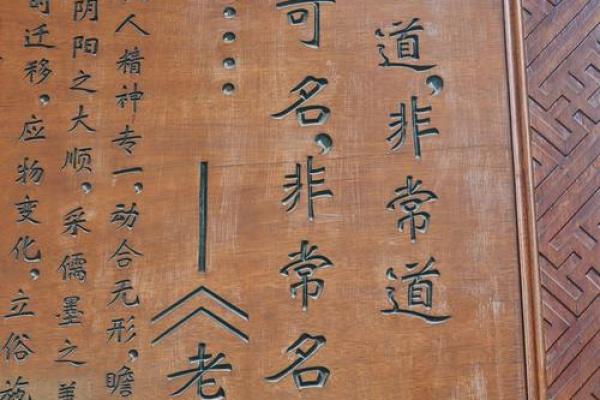 道，非常道
可名，非常名
……—《老
人精神专一，动合无形，瞻
阴阳之大顺，采儒墨之善
时迁移，应物变化，立俗施